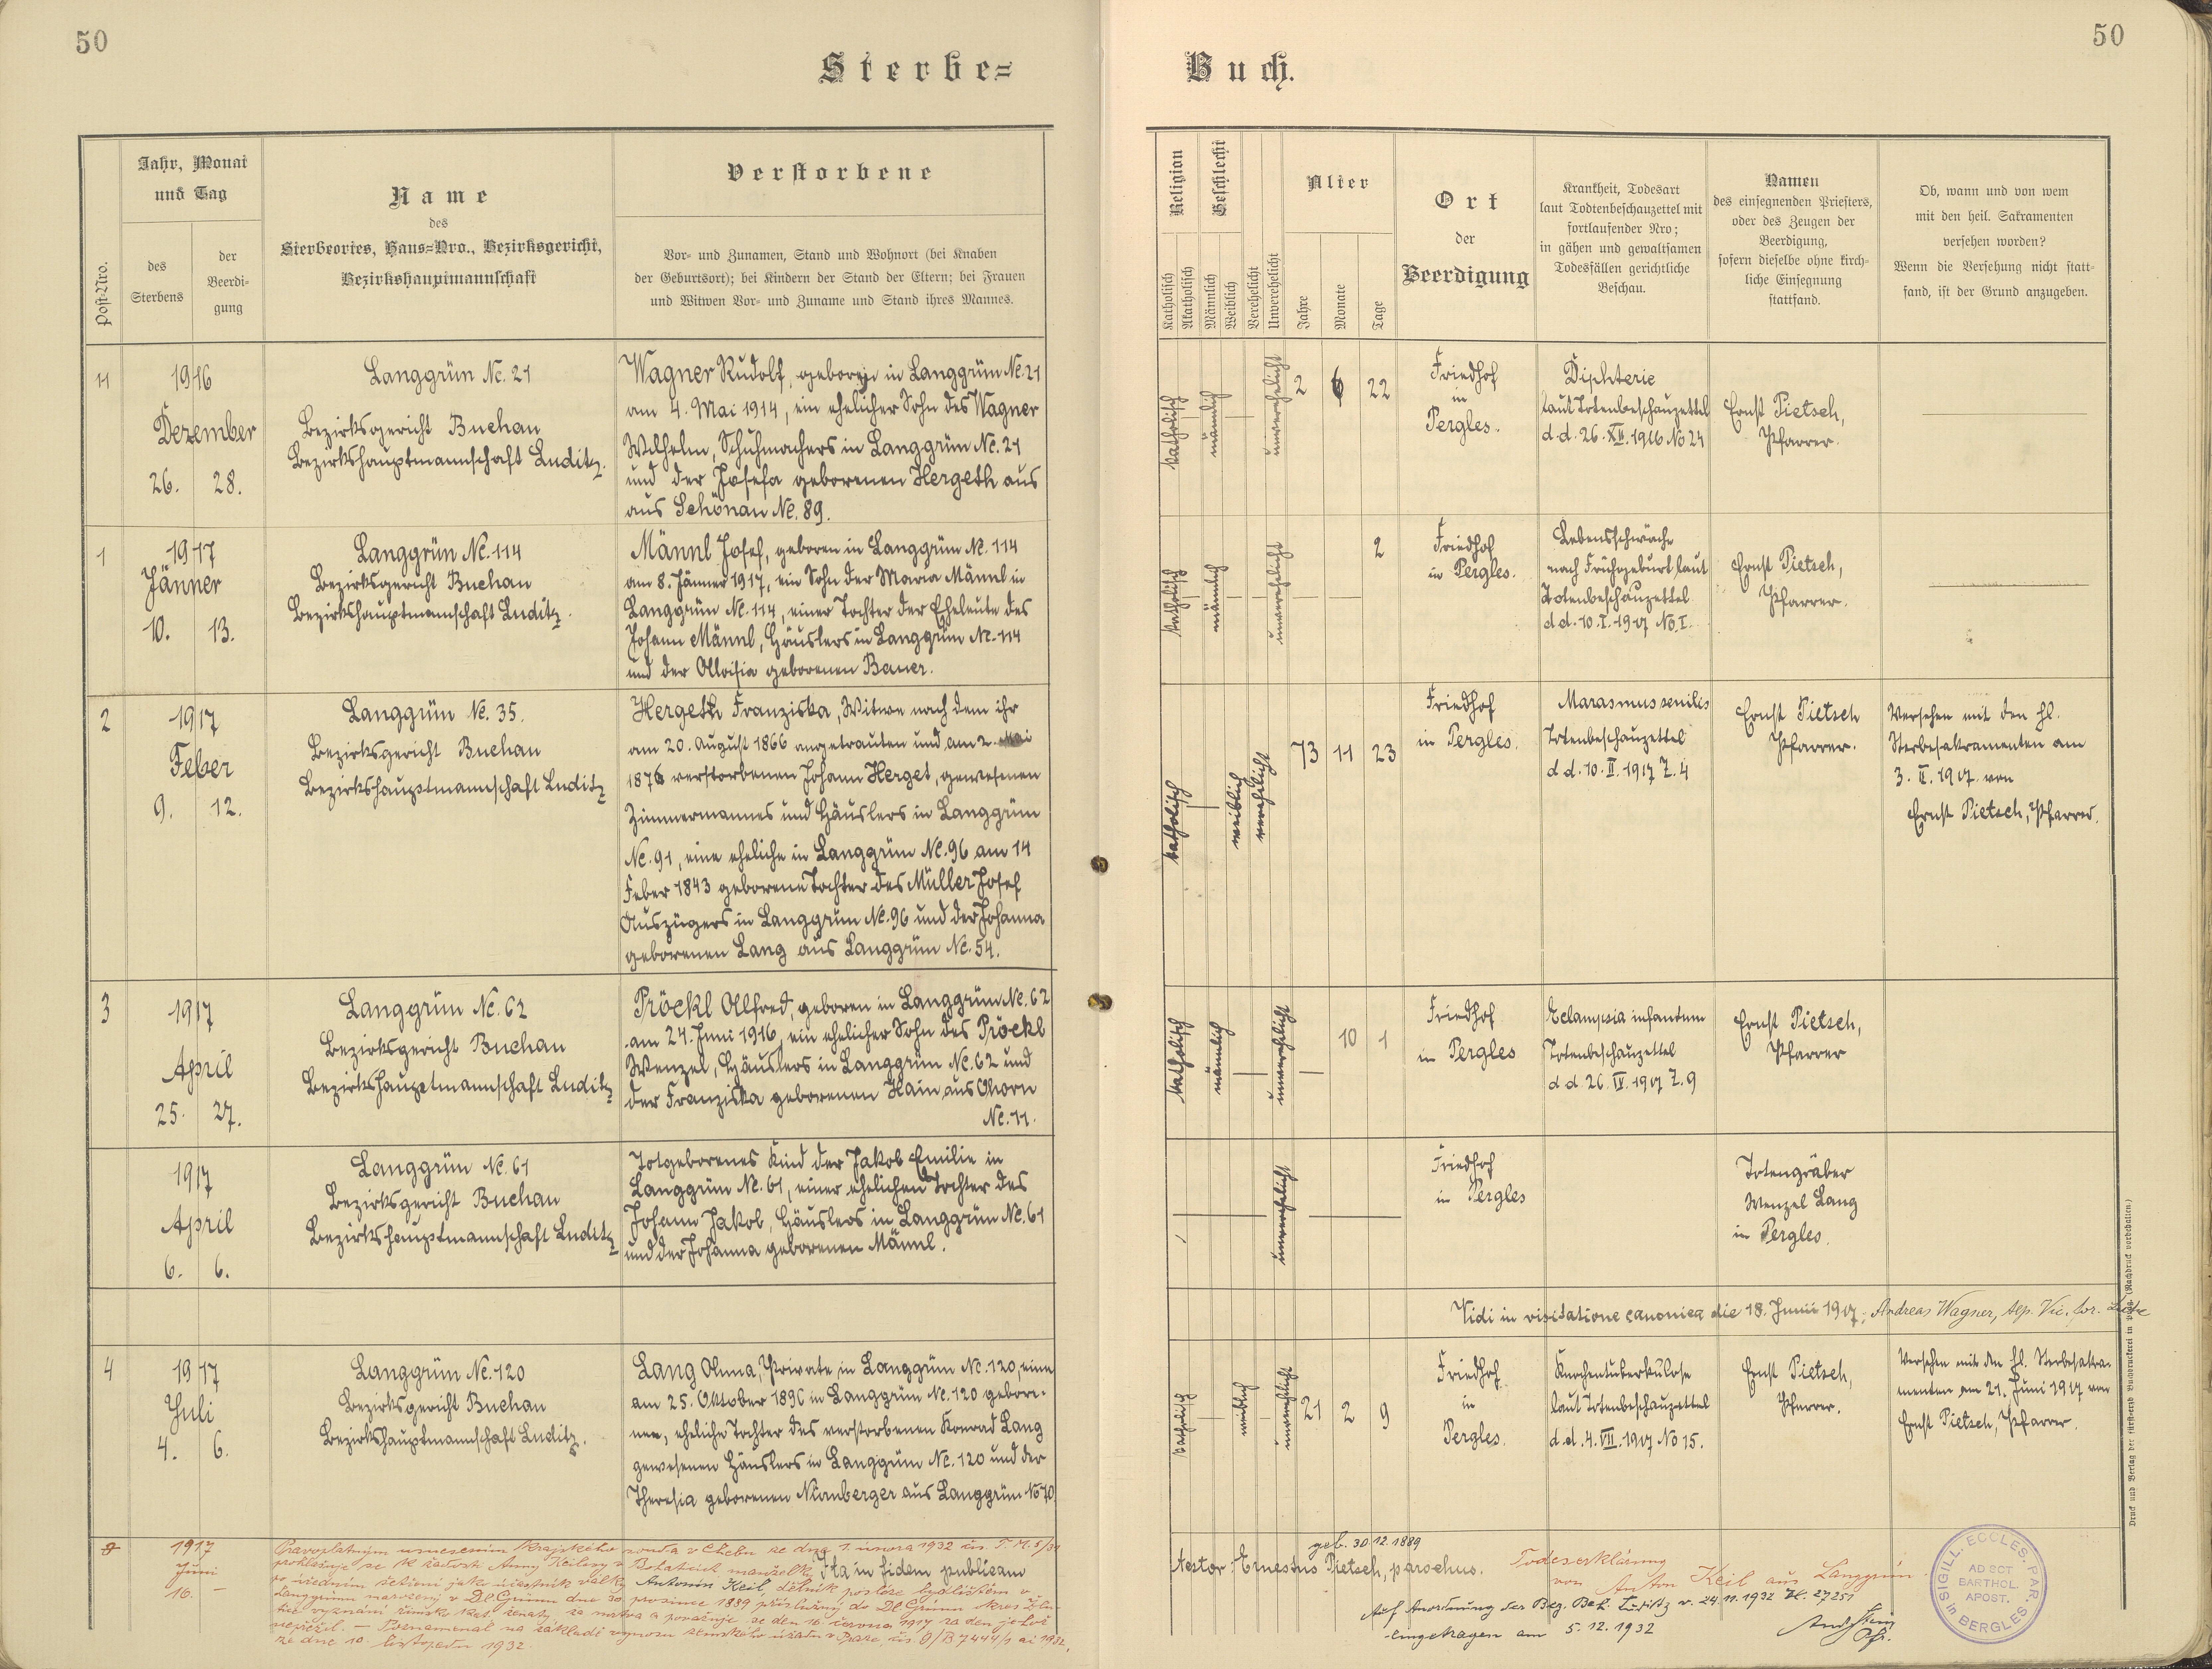 50
50
Sterbe=
Buch.
Post-Nro.
Jahr, Monat
und Tag
des
Sterbens
der
Beerdi-
gung
Name
des
Sterbeortes, Haus=Nro., Bezirksgericht,
Bezirkshauptmannschaft
Verstorbene
Vor- und Zunamen, Stand und Wohnort (bei Knaben
der Geburtsort); bei Kindern der Stand der Eltern; bei Frauen
und Witwen Vor- und Zuname und Stand ihres Mannes.
Religion
Katholisch
Akatholisch
Geschlecht
Männlich
Weiblich
Verehelicht
Unverehelicht
Alter
Jahre
Monate
Tage
Ort
der
Beerdigung
Krankheit, Todesart
laut Todtenbeschauzettel mit
fortlaufender Nro;
in gähen und gewaltsamen
Todesfällen gerichtliche
Beschau.
Namen
des einsegnenden Priesters,
oder des Zeugen der
Beerdigung,
sofern dieselbe ohne kirch-
liche Einsegnung
stattfand.
Ob, wann und von wem
mit den heil. Sakramenten
versehen worden?
Wenn die Versehung nicht statt-
fand, ist der Grund anzugeben.
11
1916
Dezember
26. 28.
Langgrün No. 21
Bezirksgericht Buchau
Bezirkshauptmannschaft Luditz.
Wagner Rudolf, geboren in Langgrün No. 21
am 4. Mai 1914, ein ehelicher Sohn des Wagner
Wilhelm, Schuhmachers in Langgrün No. 21
und der Josefa geborenen Hergeth aus
aus Schönau No. 89.
katholisch
männlich
unverehelicht
2 6 22
Friedhof
in
Pergles.
Diphterie
laut Totenbeschauzettel
d. d. 26. XII. 1916 No 24
Ernst Pietsch,
Pfarrer.
1
1917
Jänner
10. 13.
Langgrün No. 114
Bezirksgericht Buchau
Bezirkshauptmannschaft Luditz.
Männl Josef, geboren in Langgrün No. 114
am 8. Jänner 1917, ein Sohn der Maria Männl in
Langgrün No. 114, einer Tochter der Eheleute des
Johann Männl, Häuslers in Langgrün No. 114
und der Aloisia geborenen Bauer.
katholisch
männlich
unverehelicht
2
Friedhof
in Pergles.
Lebensschwäche
nach Frühgeburt laut
Totenbeschauzettel
d d. 10. I. 1917 No. I.
Ernst Pietsch,
Pfarrer.
2
1917
Feber
9. 12.
Langgrün No. 35.
Bezirksgericht Buchau
Bezirkshauptmannschaft Luditz
Hergeth Franziska, Witwe nach dem ihr
am 20. August 1866 angetrauten und am 2. Mai
1876 verstorbenen Johann Herget, gewesenen
Zimmermannes und Häuslers in Langgrün
No. 91, eine eheliche in Langgrün No. 96 am 14
Feber 1843 geborene Tochter des Müller Josef
Auszügers in Langgrün No. 96 und der Johanna
geborenen Lang aus Langgrün No. 54.
katholisch
weiblich
verehelicht
73 11 23
Friedhof
in Pergles.
Marasmus senilis
Totenbeschauzettel
d d. 10. II. 1917 Z. 4
Ernst Pietsch
Pfarrer.
Versehen mit den hl.
Sterbesakramenten am
3. II. 1917. von
Ernst Pietsch, Pfarrer.
3
1917
April
25. 27.
Langgrün No. 62
Bezirksgericht Buchau
Bezirkshauptmannschaft Luditz
Pröckl Alfred, geboren in Langgrün No. 62
am 24. Juni 1916, ein ehelicher Sohn des Pröckl
Wenzel, Häuslers in Langgrün No. 62 und
der Franziska geborenen Hain, aus Ohorn
No. 11.
katholisch
männlich
unverehelicht
10 1
Friedhof
in Pergles
Eclampsia infantum
Totenbeschauzettel
d d. 26. IV. 1917 Z. 9
Ernst Pietsch,
Pfarrer
1917
April
6. 6.
Langgrün No. 61
Bezirksgericht Buchau
Bezirkshauptmannschaft Luditz
Totgeborenes Kind der Jakob Emilie in
Langgrün No. 61, einer ehelichen Tochter des
Johann Jakob, Häuslers in Langgrün No. 61
und der Johanna geborenen Männl.
unverehelicht
Friedhof
in Pergles
Totengräber
Wenzel Lang
in Pergles.
Vidi in visitatione canonica die 18. Junii 1917. Andreas Wagner, Vic. for.
4
1917
Juli
4. 6.
Langgrün No. 120
Bezirksgericht Buchau
Bezirkshauptmannschaft Luditz.
Lang Anna, Private, in Langgrün No. 120, eine
am 25. Oktober 1896 in Langgrün No. 120 gebore-
nen, eheliche Tochter des verstorbenen Konrad Lang
gewesenen Häuslers in Langgrün No. 120 und der
Theresia geborenen Nürnberger aus Langgrün No 70.
katholisch
weiblich
unverehelicht
21 2 9
Friedhof
in
Pergles.
Knochentuberkulose
laut Totenbeschauzettel
d. d. 4. VII. 1917 No 15.
Ernst Pietsch,
Pfarrer.
Versehen mit den hl. Sterbesakra-
menten am 21. Juni 1917 von
Ernst Pietsch, Pfarrer.
1917
Juni
16. –
Pravoplatným usnesením Krajského soudu v Chebu ze dne 1. února 1932 čís.
prohlašuje se k žádosti Anny Keilové manželky
po úředním šetření jako účastník války Antonín Keil, dělník posléze bydlištěm v
Langgrünu narozený v Dl. Grünu dne 30. prosince 1889 příslušný do Dl. Grünu okres Žlu-
tice vyznání římsk. kat. ženatý, za mrtva a považuje se den 16. června 1917 za den jehož
nepřežil. — Poznamenal na základě výnosu zemského úřadu v Praze, čís.
ze dne 10. listopadu 1932.
Ita in fidem publicam
testor Ernestus Pietsch, parochus.
geb. 30.12.1889
Todeserklärung
von Anton Keil aus Langgrün
Auf Anordnung der Bez. Beh. Luditz v. 24.11.1932 Zl. 27251
eingetragen am 5.12.1932
SIGILL. ECCLES. PAR.
AD SCT
BARTHOL.
APOST.
in BERGLES.
Druck und Verlag der Buchdruckerei in (Nachdruck vorbehalten.)